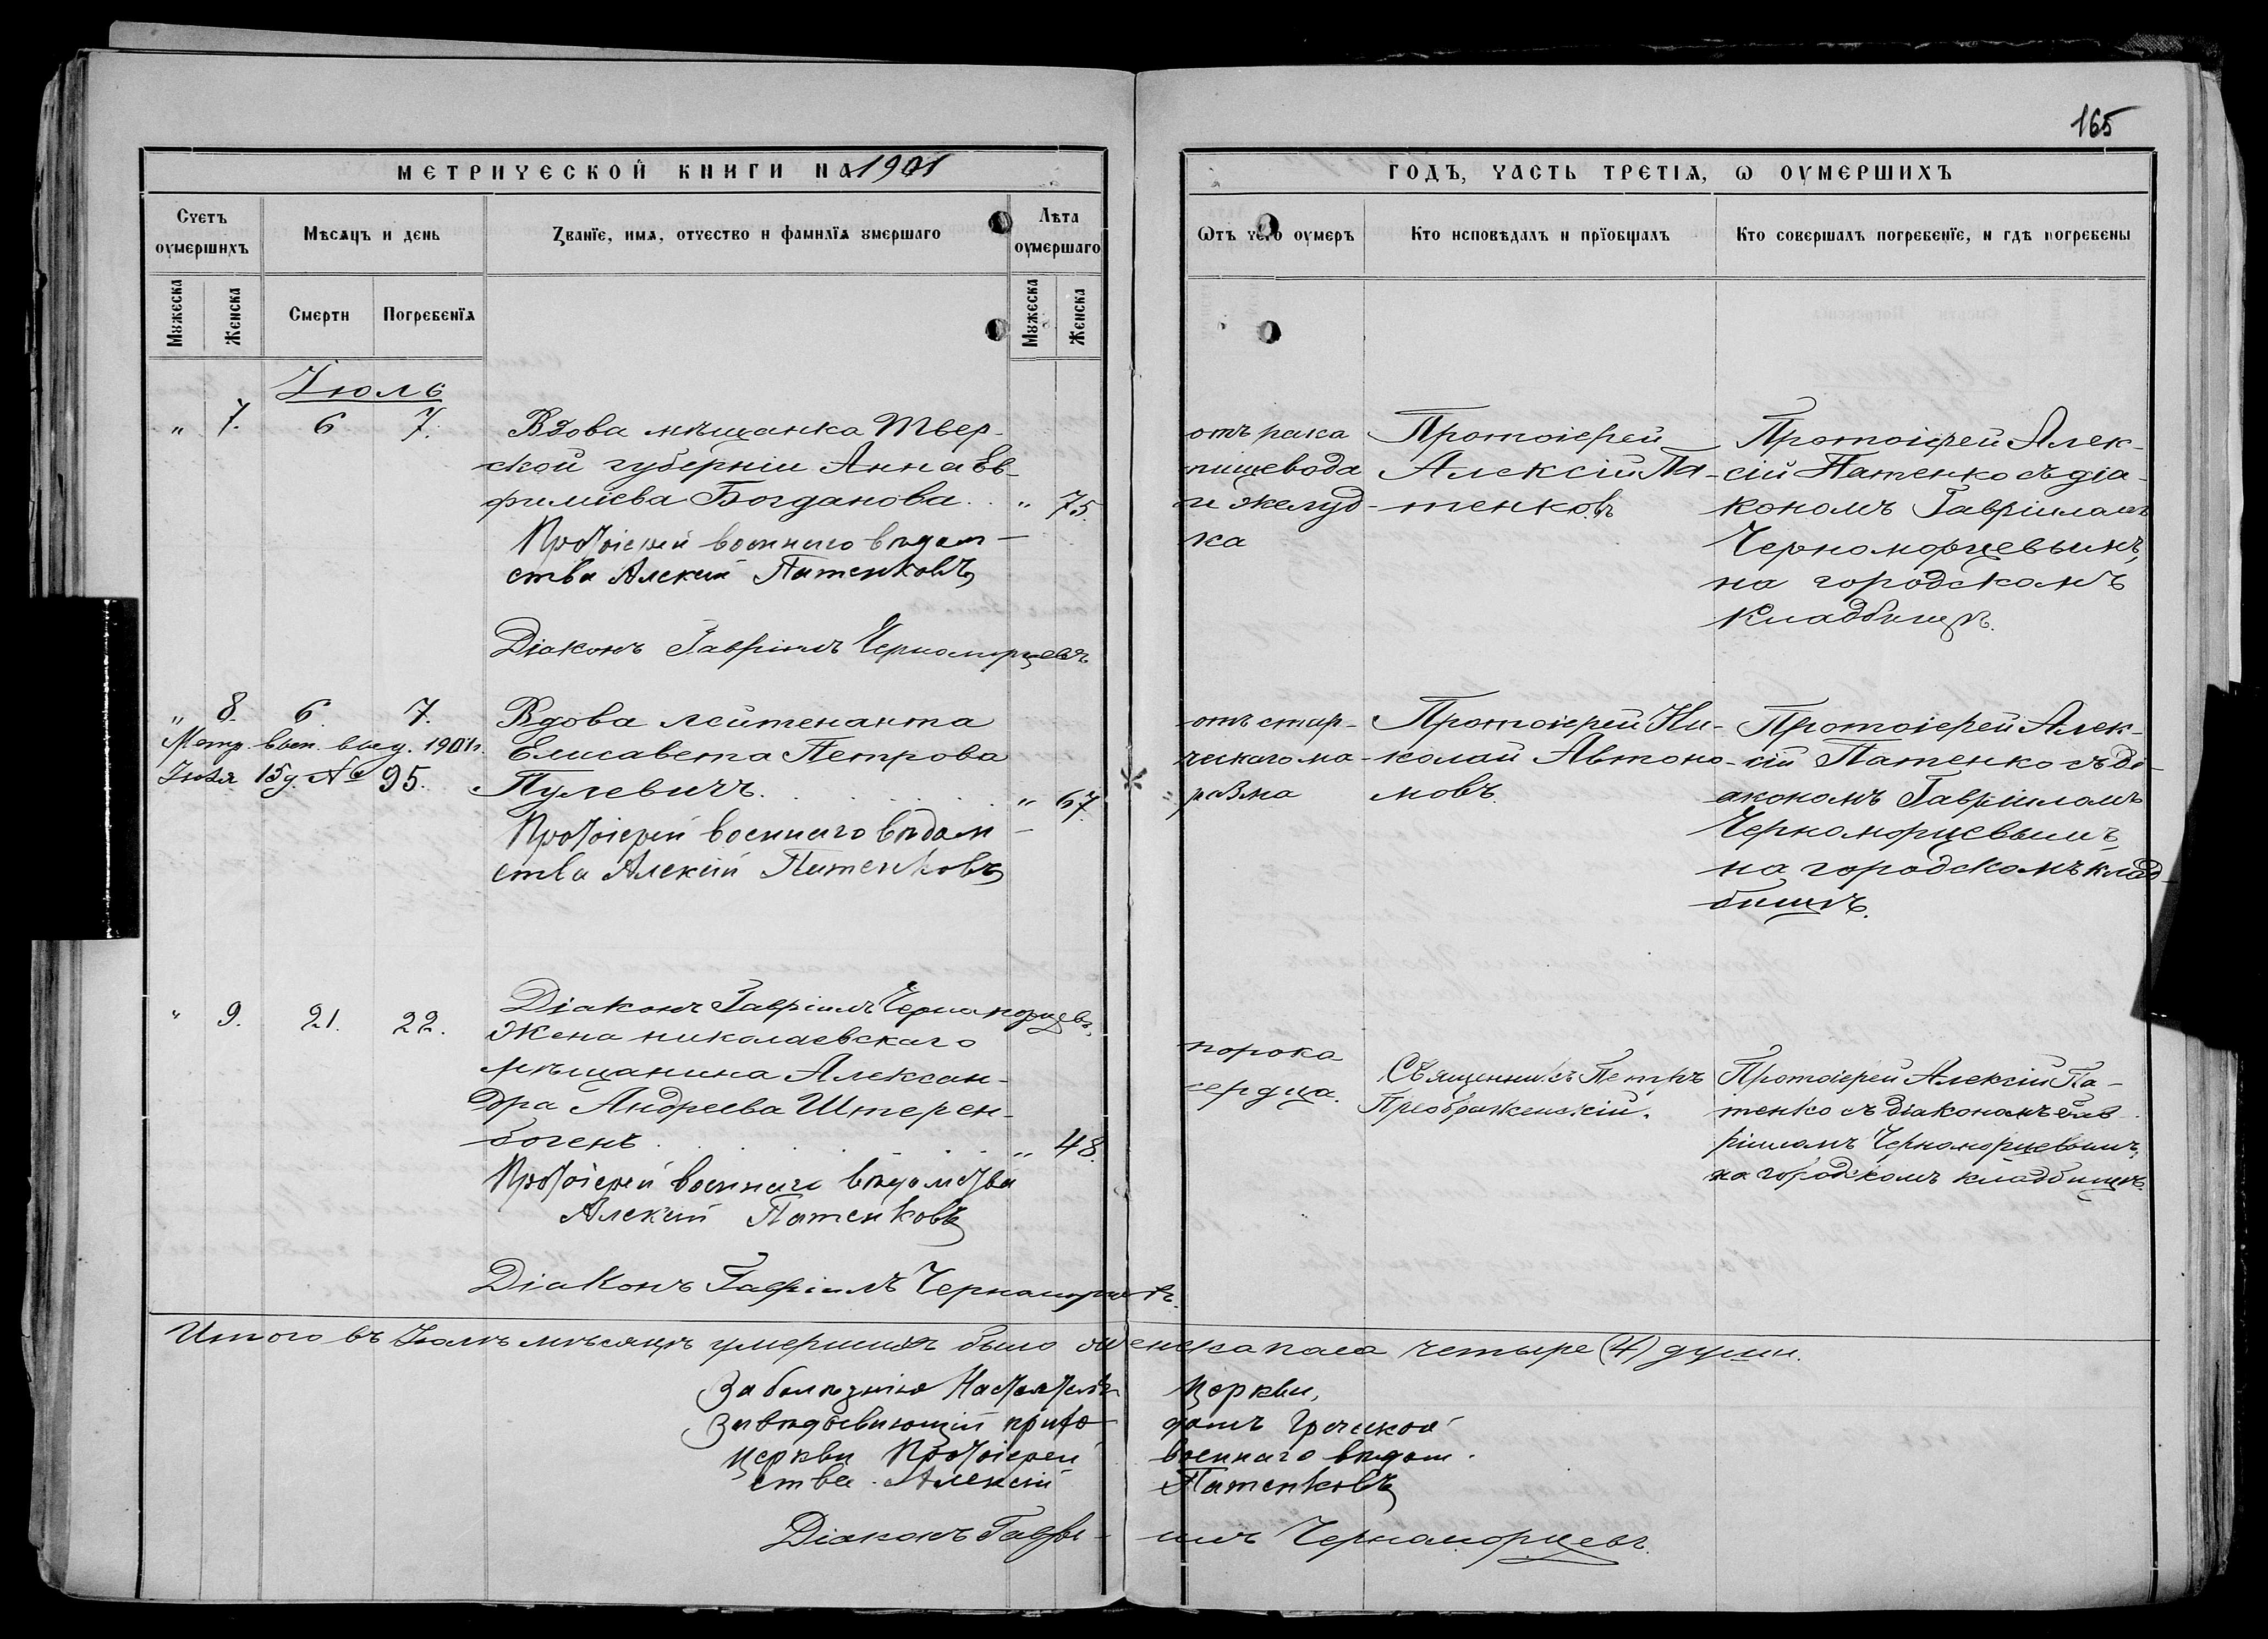 165
МЕТРИЧЕСКОЙ КНИГИ НА 1901
ГОДЪ, ЧАСТЬ ТРЕТІѦ, Ѡ ОУМЕРШИХЪ
Счетъ оумершихъ
Мѣсѧцъ и день
Званїе, имѧ, отчество и фамилїѧ умершаго
Лѣта оумершаго
Ѿтъ чего оумеръ
Кто исповѣдалъ и прїобщалъ
Кто совершалъ погребенїе, и гдѣ погребены
Мужеска
Женска
Смерти
Погребенїѧ
Мужеска
Женска
Іюль
" 7. 6 7.
Вдова мѣщанка Твер-
ской губерніи Анна Ев-
фиміева Богданова. . " 75.
Протоіерей военнаго вѣдом-
ства Алексій Патенковъ
Діаконъ Гавріилъ Черноморцевъ
отъ рака
пищевода
и желуд-
ка
Протоіерей
Алексій Па-
тенковъ
Протоіерей Алек-
сій Патенко съ діа-
кономъ Гавріиломъ
Черноморцевымъ,
на городскомъ
кладбищѣ.
" 8. 6. 7.
Метр. вып. выд. 1901 г.
Іюля 15 д. № 95.
Вдова лейтенанта
Елисавета Петрова
Пулевичъ. . . . . . " 67.
Протоіерей военнаго вѣдом-
ства Алексій Патенковъ
отъ стар-
ческаго ма-
разма
Протоіерей Ни-
колай Автоно-
мовъ.
Протоіерей Алек-
сій Патенко съ ді-
акономъ Гавріиломъ
Черноморцевымъ,
на городскомъ клад-
бищѣ.
Діаконъ Гавріилъ Черноморцевъ
" 9. 21. 22.
Жена николаевскаго
мѣщанина Алексан-
дра Андреева Штерен-
богенъ. . . . . . . " 48.
Протоіерей военнаго вѣдомства
Алексій Патенковъ
Діаконъ Гавріилъ Черноморцевъ.
порока
сердца.
Священникъ Петръ
Преображенскій.
Протоіерей Алексій Па-
тенко съ діакономъ Гав-
ріиломъ Черноморцевымъ,
на городскомъ кладбищѣ.
Итого въ Іюлѣ мѣсяцѣ умершихъ было женска пола четыре (4) души.
За болѣзнію Настоятеля Церкви,
Завѣдывающій прихо- домъ Греческой
Церкви Протоіерей военнаго вѣдом-
ства Алексій Патенковъ
Діаконъ Гаврі- илъ Черноморцевъ.